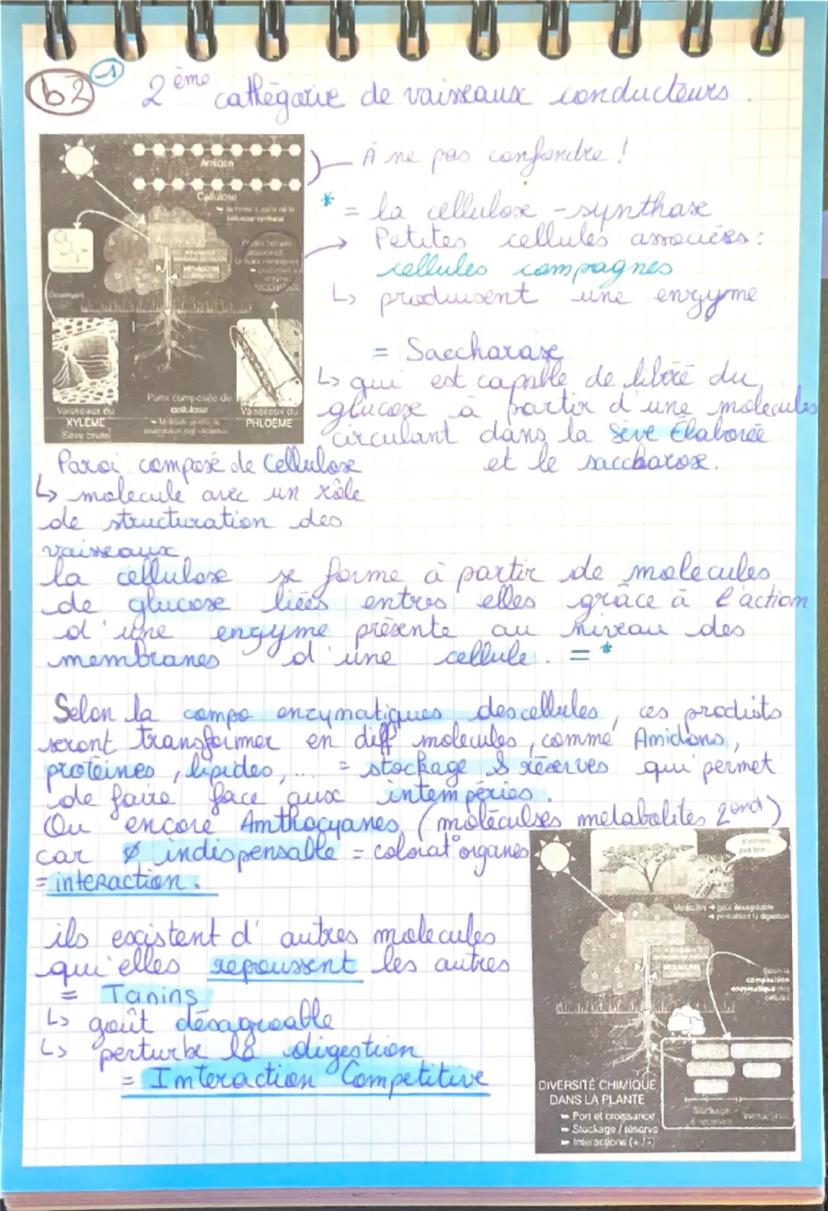 b2
1
2ème cathégorie de vaisseaux conducteurs.
Amidon
Cellulose
À ne pas confondre !
* = la cellulose-synthase
Petites cellules associées :
cellules compagnes
↳ produisent une enzyme
= Saccharase
↳ qui est capable de libéré du
glucose à partir d'une molécules
circulant dans la Sève Élaborée
et le saccharose.
Paroi composée de
cellulose
Vaisseaux du
XYLÈME
Sève brute
Vaisseaux du
PHLOÈME
Paroi composé de Cellulose
↳ molécule avec un rôle
de structuration des
vaisseaux
la cellulose se forme à partir de molécules
de glucose liées entres elles grâce à l'action
d'une enzyme présente au niveau des
membranes d'une cellule. = *
Selon la compo enzymatiques des cellules, ces produits
seront transformer en diff molécules, comme Amidons,
protéines, lipides,... = stockage & réserves qui permet
de faire face aux intempéries.
Ou encore Anthocyanes (molécules métabolites 2nd)
car Ø indispensable = colorat° organes
= interaction.
ils existent d'autres molécules
qu'elles repoussent les autres
= Tanins
↳ goût désagréable
↳ perturbe la digestion
= Interaction Compétitive
Molécules → goût désagréable
→ perturbant la digestion
Selon la
composition
enzymatique des
cellules
DIVERSITÉ CHIMIQUE
DANS LA PLANTE
Port et croissance
Stockage / réserve
Interactions (+ / -)